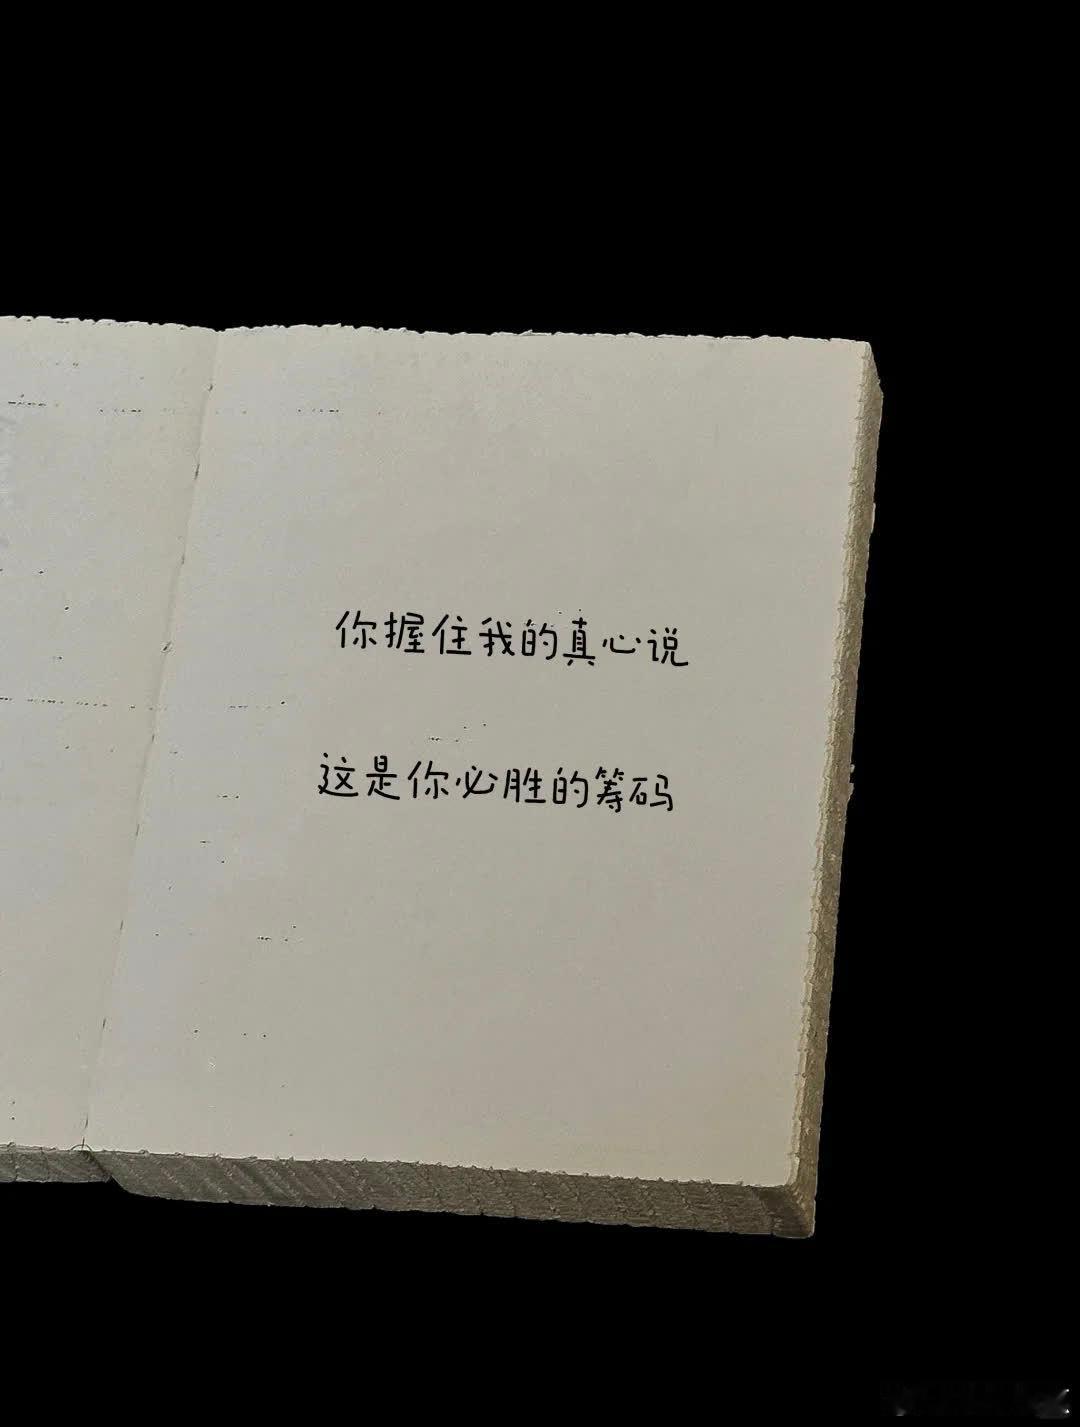 你握住我的真心说
这是你必胜的筹码